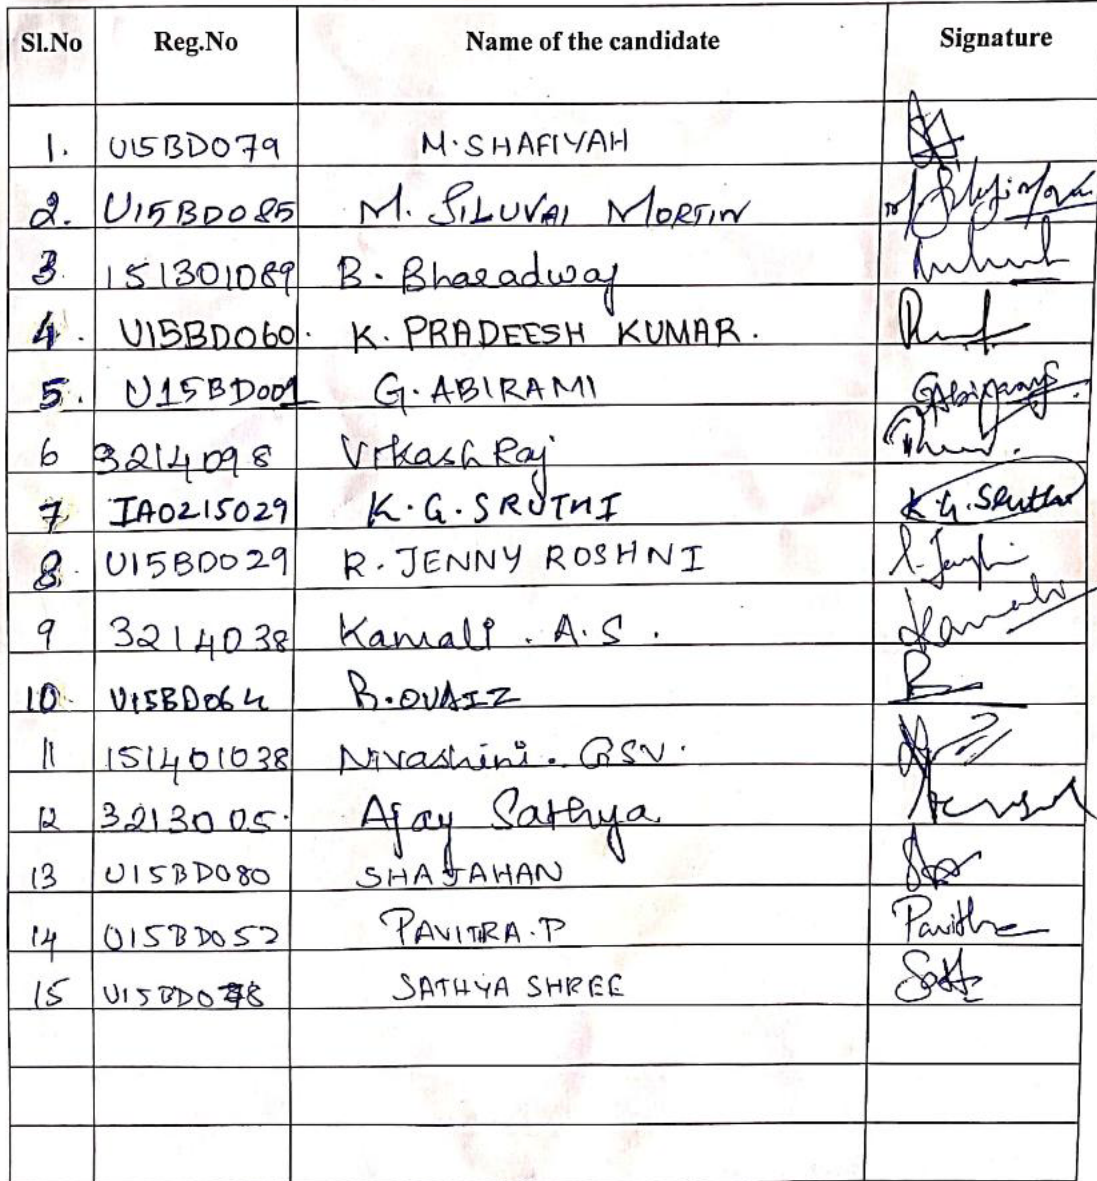 Sl.No Reg.No Name of the candidate Signature
1. U15BD079 M.SHAFIYAH
2. U15BD085 M. SILUVAI MORTIN
3. 151301089 B. Bharadwaj
4. U15BD060. K. PRADEESH KUMAR.
5. U15BD001 G. ABIRAMI GAbirami
6 3214098 Vikash Raj
7 IA0215029 K.G.SRUTHI K.G.Sruthi
8. U15BD029 R. JENNY ROSHNI
9 3214038 Kamali . A.S . Kamali
10. U15BD064 B.OVAIZ
11 151401038 Nivashini. GSV.
12 3213005. Ajay Sathya
13 U15BD080 SHAJAHAN
14 U15BD052 PAVITRA.P Pavithra
15 U15BD078 SATHYA SHREE